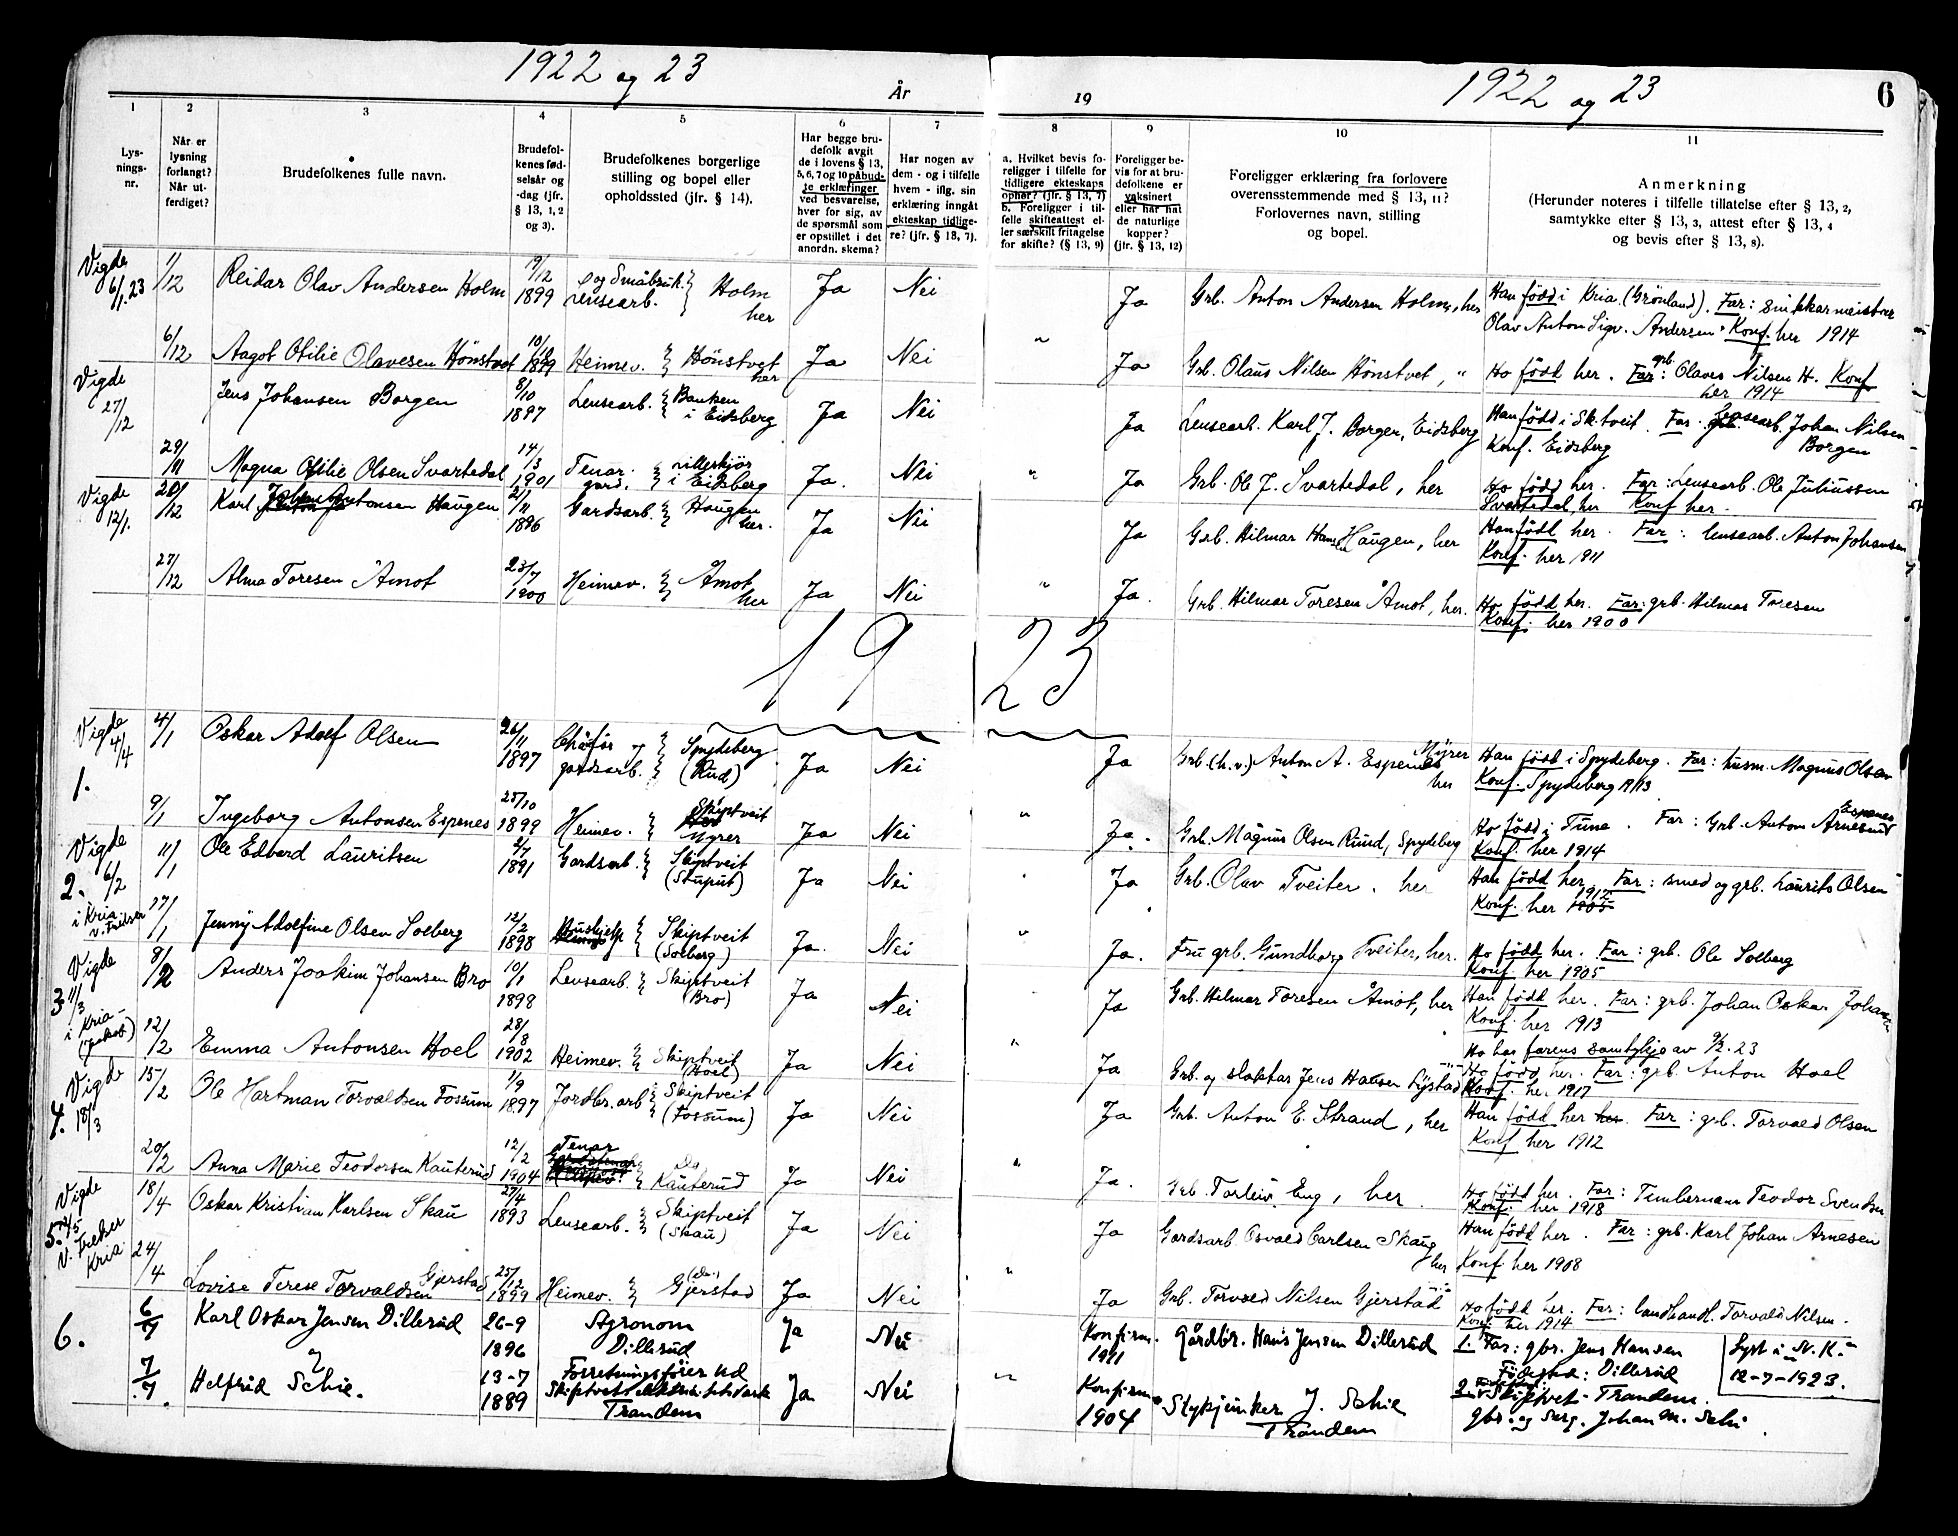 1922 og 23
År
19
1922 og 23
6
1
2
3
4
5
6
7
8
9
10
11
Lys-
nings-
nr.
Når er
lysning
forlangt?
Når ut-
ferdiget?
Brudefolkenes fulle navn.
Brudefol-
kenes fød-
selsår og
-dag (jfr.
§ 13, 1, 2
og 3).
Brudefolkenes borgerlige
stilling og bopel eller
opholdssted (jfr. § 14).
Har begge bru-
defolk avgit
de i lovens § 13,
5, 6, 7 og 10 påbud-
te erklæringer
ved besvarelse,
hver for sig, av
de spørsmål som
er opstillet i det
anordn. skema?
Har nogen av
dem - og i tilfelle
hvem - iflg. sin
erklæring inngåt
ekteskap tidlige-
re? (jfr. § 13, 7).
a. Hvilket bevis fo-
religger i tilfelle for
tidligere ekteskaps
ophør? (jfr. § 13, 7)
b. Foreligger i til-
felle skifteattest el-
ler særskilt fritagelse
for skifte? (§ 13, 9)
Foreligger be-
vis for at bru-
defolkene er
vaksinert
eller har hat
de naturlige
kopper?
(jfr. § 13, 12)
Foreligger erklæring fra forlovere
overensstemmende med § 13, 11?
Forlovernes navn, stilling
og bopel.
Anmerkning
(Herunder noteres i tilfelle tillatelse efter § 13, 2,
samtykke efter § 13, 3, attest efter § 13, 4
og bevis efter § 13, 8).
Vigde 6/1.23 1/12 Reidar Olav Andersen Holm 19/12 1899 og Småbruk. Lensearb. Holm her Ja Nei Ja Grb. Anton Andersen Holm, her Han född i Kria (Grönland). Far: snikkarmeister
Olav Anton Sigv. Andersen. Konf. her 1914
6/12 Aagot Otilie Olavesen Hönstvet 1899 Heimev. Hönstvet her Ja Nei " Ja Grb. Olaus Nilsen Hönstvet, " Ho född her. Far: grb. Olaves Nilsen H. Konf
her 1914
Vigde 27/12 Jens Johansen Borgen 8/10 1897 Lensearb. Banken i Eidsberg Ja Nei Ja Lensearb. Karl J. Borgen, Eidsberg Han född i Sktveit. Far. Lensearb. Johan Nilsen Borgen
Konf. Eidsberg
29/11 Magna Otilie Olsen Svartedal 14/3 1901 Tenar. i Eidsberg Ja. Nei " Ja Grb. Ole J. Svartedal, her Ho född her. Far: Lensearb. Ole Juliussen
Svartedal, her Konf her.
Vigde 12/1. 20/12 Karl Johan Antonsen Haugen 2/11 1896 Gardsarb. Haugen her. Ja Nei Ja Grb. Hilmar Hansen Haugen, her Han född her. Far: lensearb. Anton Johansen
Konf. her 1911
27/12 Alma Toresen Åmot 23/7 1900 Heimev. Åmot, her Ja Nei " Ja. Grb. Hilmar Toresen Åmot, her. Ho född her. Far: grb. Hilmar Toresen
Konf. her 1900
1923
Vigde 4/4 1. 4/1 Oskar Adolf Olsen 26/11 1897 Chåfør gardsarb. Spydeberg (Rud) Ja Nei Ja Grb. (h.v.) Anton A. Espenes Myrer her Han född i Spydeberg. Far: husm. Magnus Olsen
Konf. Spydeberg
9/1 Ingeborg Antonsen Espenes 25/10 1899 Heimev. Skiptveit Myrer Ja Nei " Ja. Grb. Magnus Olsen Ruud, Spydeberg Ho född i Tune. Far: Grb. Anton Arnesen Espenes
Konf. her 1914
Vigde 6/2 2. i Kria 11/1 Ole Edvard Lauritsen 2/7 1891 Gardsarb. Skiptveit (Stuput) Ja Nei Ja Grb. Olav Tveiter. her Han född her Far: smed og grb. Laurits Olsen
Konf. her 1905
17/1 Jenny Adolfine Olsen Solberg 12/2 1898 Hushjelp Skiptveit (Solberg) Ja. Nei " Ja. Fru grb. Gundborg Tveiter, her. Ho född her. Far: grb. Ole Solberg
Konf. her 1905
Vigde 3 11/3 i Kria (Jakob) 8/2 Anders Joakim Johansen Bro 10/1 1898 Lensearb. Skiptveit (Bro) Ja Nei Ja Grb. Hilmar Toresen Åmot, her Han född her. Far: grb. Johan Oskar Johansen
Konf. her 1913
12/2 Emma Antonsen Hoel 28/8 1902 Heimev. Skiptveit (Hoel) Ja Nei " Ja Grb. og slaktar Jens Hansen Ho har farens samtykje av 9/2.23
Ho född her. Far: grb. Anton Hoel
Konf. her 1917
Vigde 4. 18/3 15/2 Ole Hartman Torvaldsen Fossum 1/9 1897 Jordbr.arb Skiptveit (Fossum) Ja Nei Ja Grb. Anton E. Strand, her Han född her. Far: grb. Torvald Olsen
Konf her 1912
20/2 Anna Marie Teodorsen Kauterud 12/2 1904 Tenar Ds Kauterud Ja Nei " Ja. Grb. Torleiv Eng, her. Ho född her. Far: Tømbermann Teodor Svendsen
Konf. her 1918
Vigde 5. Kria 18/4 Oskar Kristian Karlsen Skau 27/4 1893 Lensearb. Skiptveit (Skau) Ja Nei Ja Gardsarb. Osvald Carlsen Skaug her Han född her. Far: grb. Karl Johan Arnesen
Konf her 1908
24/4 Lovise Terese Torvaldsen Gjerstad 25/12 1899 Heimev. Gjerstad Ja Nei " Ja Grb. Torvald Nilsen Gjerstad Ho född her. Far: landhandl. Torvald Nilsen.
Konf. her 1914
6. 6/7 Karl Oskar Jensen Dillerud 26-9 1896 Agronom Dillerud Ja Nei Konfirm. 1911 Gårdbr. Hans Jensen Dillerud 1. Far: gbr. Jens Hansen
Födested: Dillerud
Lyst i N. K.
12-7-1923.
7/7 Helfrid Schie. 13-7 1889 Forretningsfører ved Skiptvet Trandem Ja Nei " Konfirm 1904 Blykjenker J. Schie Trandem 2. Skiptvet - Trandem.
gbr. og serg. Johan M. Schi.